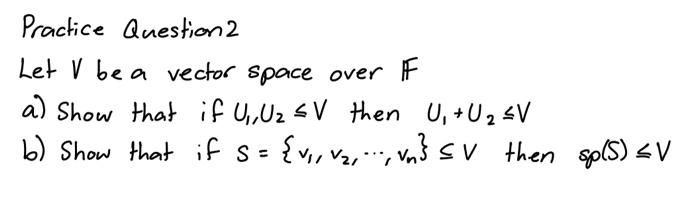 Practice Question 2
Let V be a vector space over 𝔽
a) Show that if U₁,U₂ ≤ V then U₁+U₂ ≤ V
b) Show that if S = {v₁, v₂, ..., vₙ} ⊆ V then sp(S) ≤ V